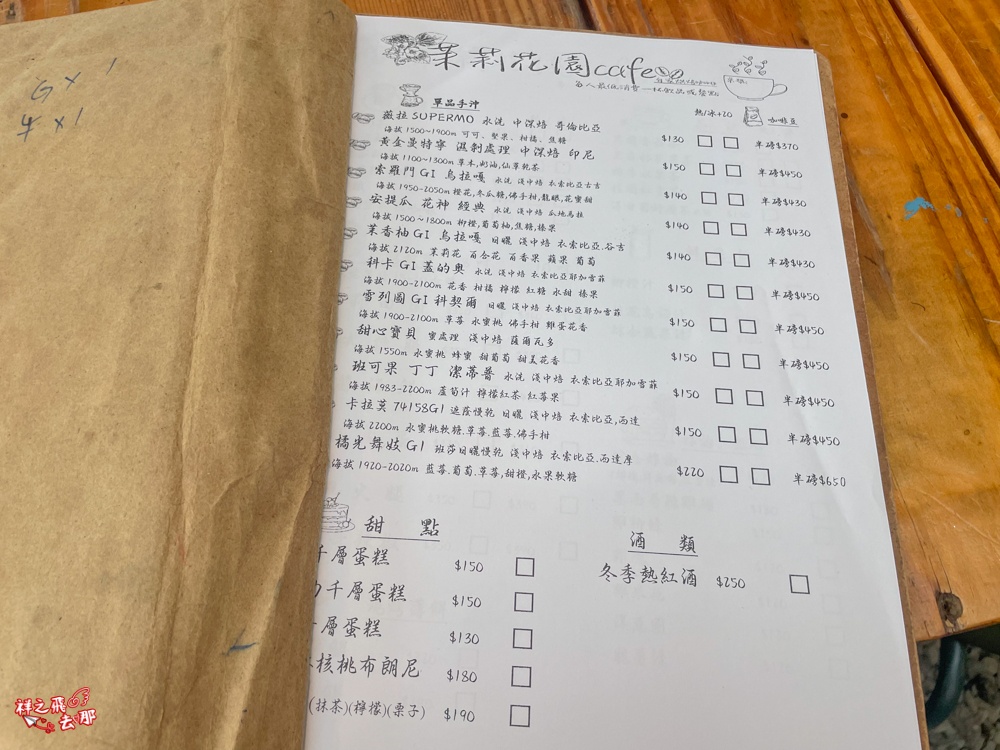 G x 1
牛 x 1
茉莉花園cafe
每人最低消費一杯飲品或餐點
單品手沖
熱/冰+20
咖啡豆
薇拉 SUPERMO 水洗 中深焙 哥倫比亞
海拔 1500~1900m 可可、堅果、柑橘、焦糖 $130 半磅$370
黃金曼特寧 濕剝處理 中深焙 印尼
海拔 1100~1300m 草本,奶油,仙草乾茶 $150 半磅$450
索羅門 G1 烏拉嘎 水洗 淺中焙 衣索比亞古吉
海拔 1950-2050m 橙花,冬瓜糖,佛手柑,龍眼,花蜜甜 $140 半磅$430
安提瓜 花神 經典 水洗 淺中焙 瓜地馬拉
海拔 1500~1800m 柳橙,葡萄柚,焦糖,榛果 $140 半磅$430
茉香柚G1 烏拉嘎 日曬 淺中焙 衣索比亞.谷吉
海拔 2120m 茉莉花 百合花 百香果 蘋果 葡萄 $140 半磅$430
科卡 G1 蓋的奧 水洗 淺中焙 衣索比亞耶加雪菲
海拔 1900-2100m 花香 柑橘 檸檬 紅糖 水甜 榛果 $150 半磅$450
雪列圖 G1 科契爾 日曬 淺中焙 衣索比亞耶加雪菲
海拔 1900-2100m 草莓 水蜜桃 佛手柑 雞蛋花香 $150 半磅$450
甜心寶貝 蜜處理 淺中焙 薩爾瓦多
海拔 1550m 水蜜桃 蜂蜜 甜葡萄 甜美花香 $150 半磅$450
班可果 丁丁 潔蒂普 水洗 淺中焙 衣索比亞耶加雪菲
海拔 1983-2200m 蘆筍汁 檸檬紅茶 紅莓果 $150 半磅$450
卡拉莫 74158G1 遮蔭慢乾 日曬 淺中焙 衣索比亞,西達
海拔 2200m 水蜜桃軟糖.草莓.藍莓.佛手柑 $150 半磅$450
橘光舞妓 G1 班莎日曬慢乾 淺中焙 衣索比亞.西達摩
海拔 1920-2020m 藍莓.葡萄.草莓,甜橙,水果軟糖 $220 半磅$650
甜 點
千層蛋糕 $150
千層蛋糕 $150
層蛋糕 $130
核桃布朗尼 $180
(抹茶)(檸檬)(栗子) $190
酒 類
冬季熱紅酒 $250
祥之飛去那